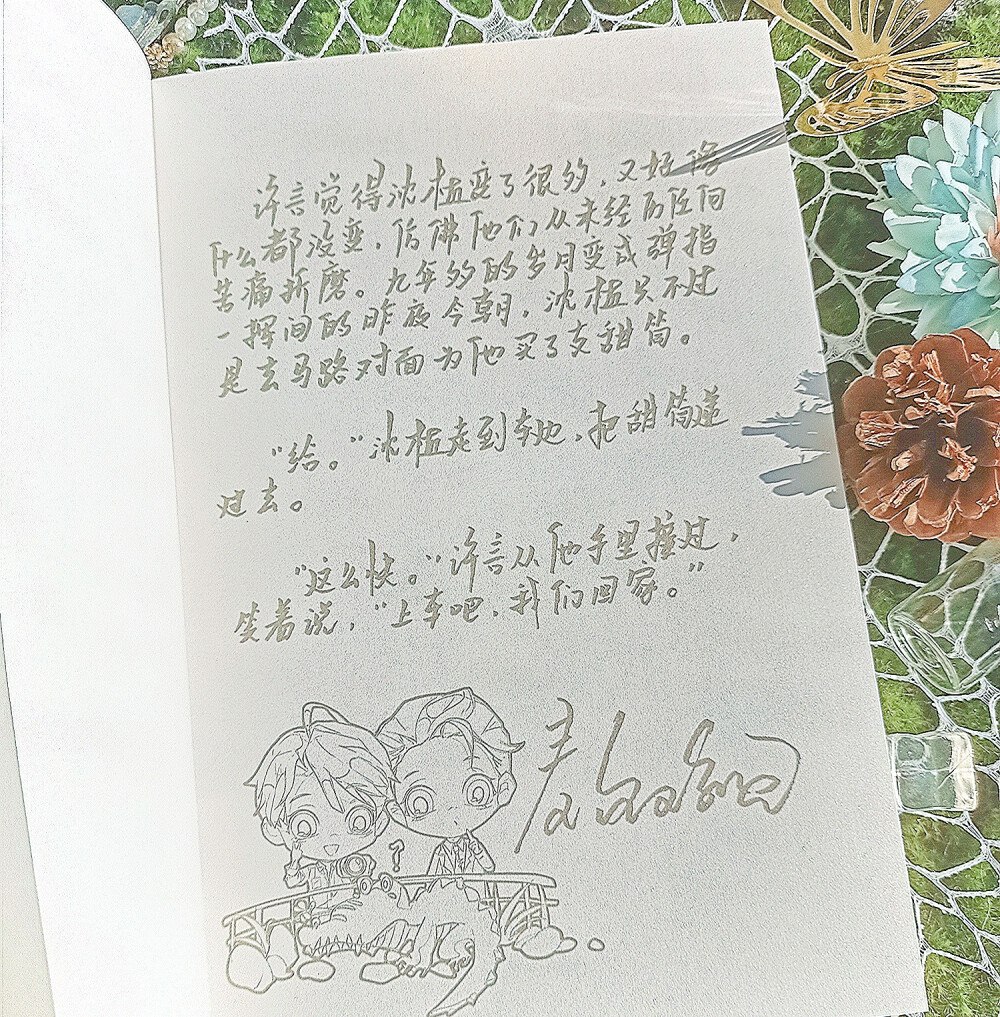 许言觉得沈植变了很多，又好像
什么都没变，仿佛他们从未经历任何
苦痛折磨。九年多的岁月变成弹指
一挥间的昨夜今朝，沈植只不过
是去马路对面为他买了支甜筒。
“给。”沈植走到车边，把甜筒递
过去。
“这么快。”许言从他手里接过，
笑着说，“上车吧，我们回家。”
?